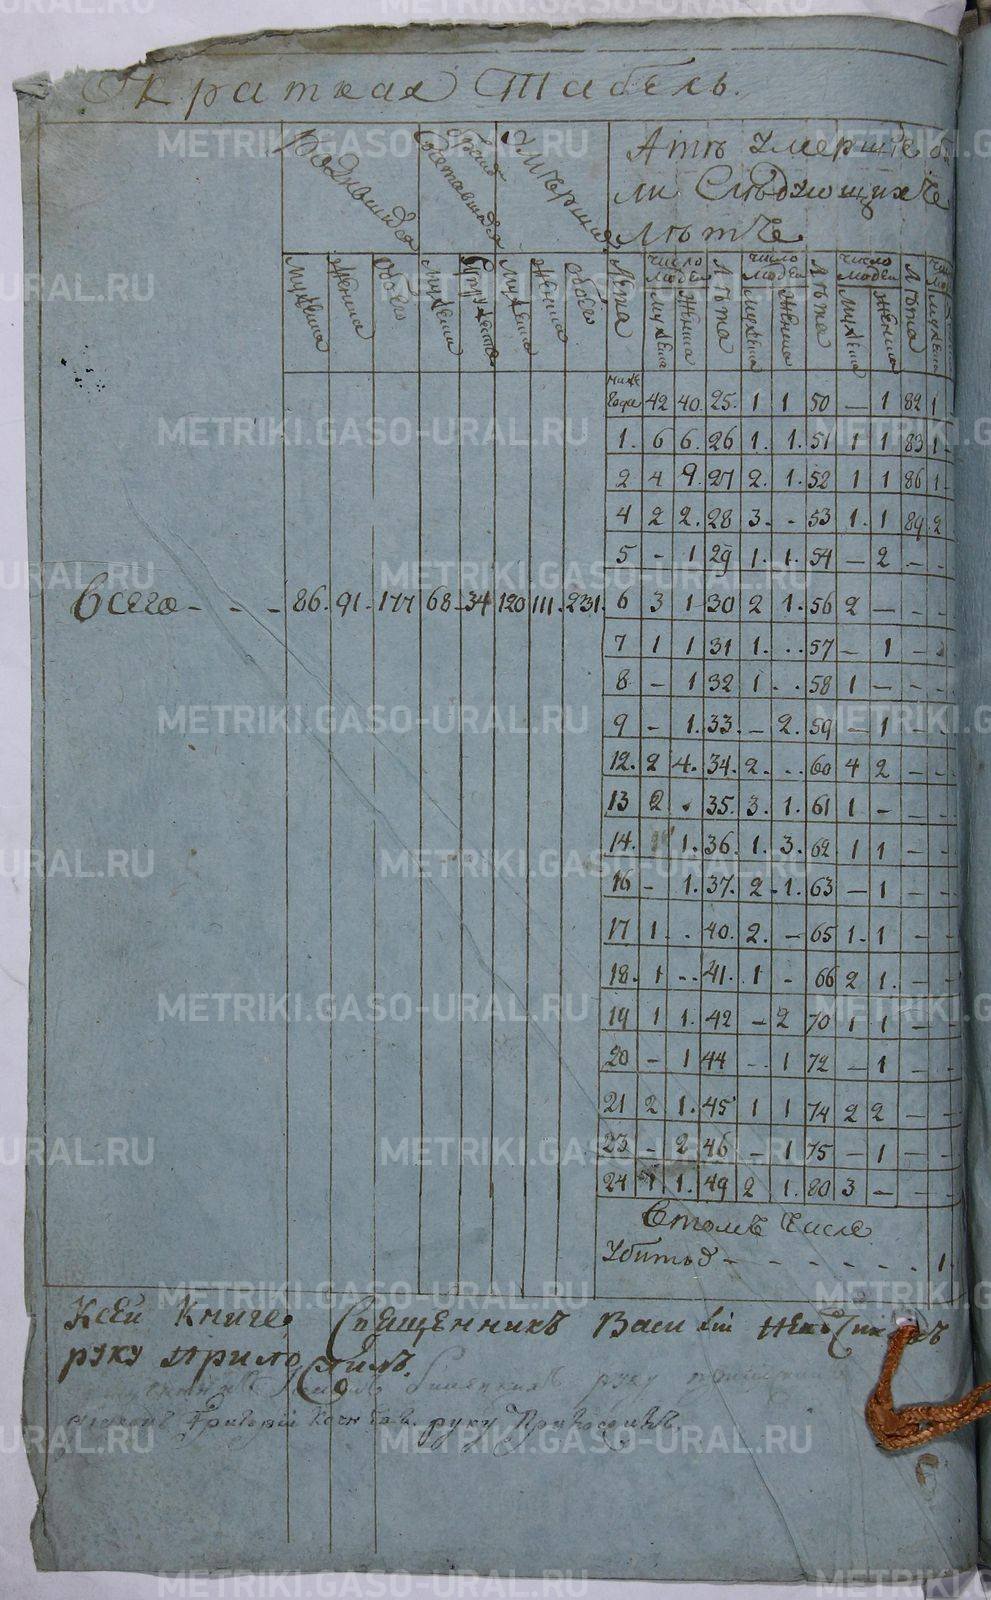 Краткая Табель.
Родившихся
Браком Сочетавшихся
Умерших
А тѣ Умершие бы
ли Слѣдующихъ
Лѣтъ
мужеска женска обоего мужеска женска обоего
Лѣта число людей Лѣта число людей Лѣта число людей Лѣта
мужеска женска мужеска женска мужеска женска мужеска
ниже года 42 40. 25. 1 1 50 — 1 82 1
1. 6 6. 26 1. 1. 51 1 1 83 1 -
2 4 9. 27 2. 1. 52 1 1 86 1 -
4 2 2. 28 3. - 53 1. 1 89. 2
5 - 1 29 1. 1. 54 — 2 - -
Всего - - - 86. 91 - 177 68 - 34 120 111. 231.
6 3 1 - 30 2 1. 56 2 — - -
7 1 1 31 1. .. 57 — 1 -
8 - 1 32 1 .. 58 1 — - -
9 - 1. 33. — 2. 59 — 1 - -
12. 2 4. 34. 2. .. 60 4 2 - -
13 2 . 35. 3. 1. 61 1 -
14. 1. 36. 1. 3. 62 1 1 - -
16 - 1. 37. 2 - 1. 63 — 1 - -
17 1 . . 40. 2. — 65 1. 1 - -
18. 1 -- 41. 1 - 66 2 1. - -
19 1 1. 42 — 2 70 1 1 - -
20 - 1 44 - 1 72 — 1
21 2 1. 45 1 1 74 2 2 - -
23 - 2 46 - 1 75 — 1 - -
24 1 1. 49 2 1. 80 3 — - -
В томъ Числе
Убитыхъ - - - - - - - 1.
К сей Книге, Священникъ Васи лій
руку приложилъ.
руку
Григорій руку приложилъ
METRIKI.GASO-URAL.RU